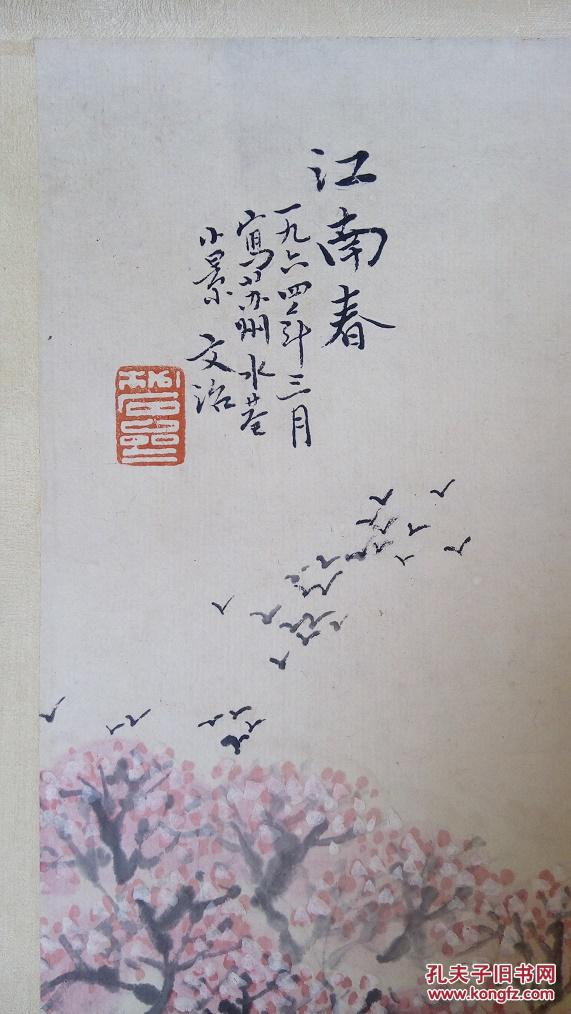 江南春
一九六四年三月
寫苏州水巷
小景 文治
孔夫子旧书网
www.kongfz.com